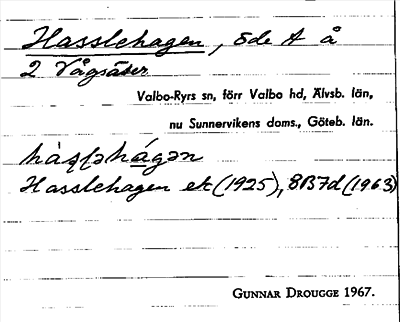 Hasslehagen, öde t å
2 Vågsäter
Valbo-Ryrs sn, förr Valbo hd, Älvsb. län,
nu Sunnervikens doms., Göteb. län.
hàʂʂləhágən
Hasslehagen ek (1925), 8B7d (1963)
GUNNAR DROUGGE 1967.